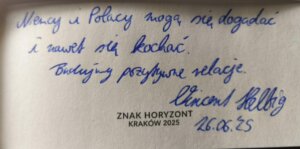 Niemcy i Polacy mogą się dogadać
i nawet się kochać.
Budujmy pozytywne relacje.
Vincent Helbig
ZNAK HORYZONT
KRAKÓW 2025
26.06.25